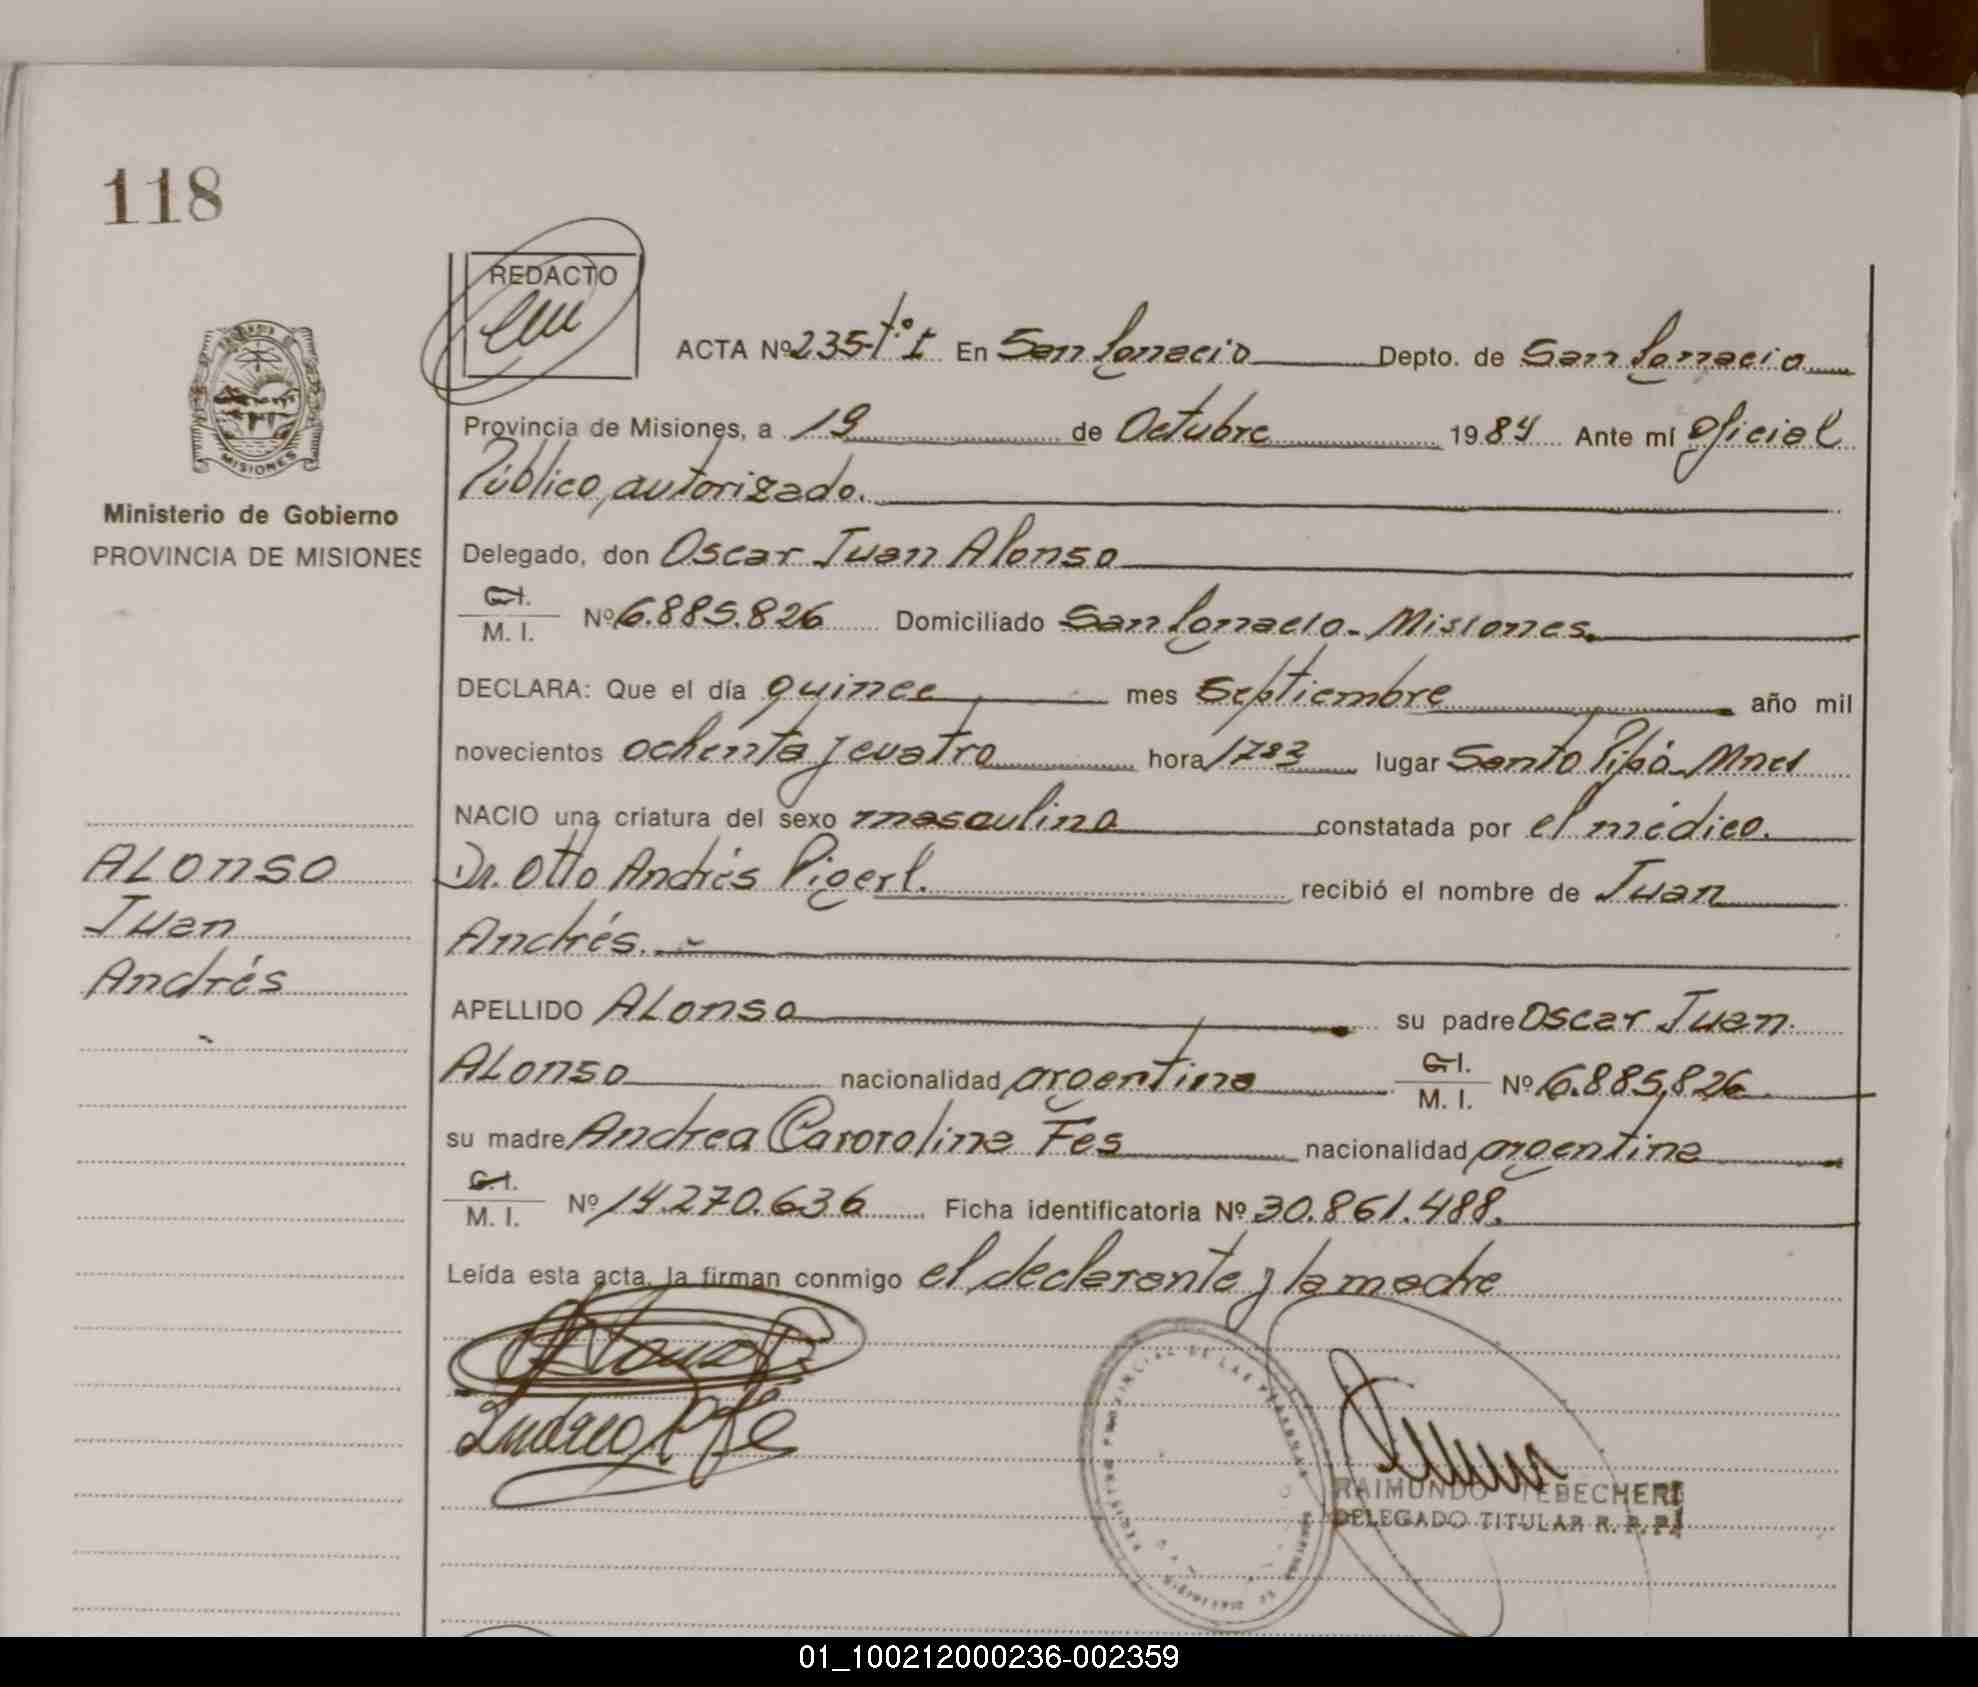 118
REDACTO
ACTA Nº 235-tº I En San Ignacio Depto. de San Ignacio
MISIONES
Provincia de Misiones, a 19 de Octubre 1984 Ante mí Oficial
Público autorizado.
Ministerio de Gobierno
PROVINCIA DE MISIONES
Delegado, don Oscar Juan Alonso
C.I.
M. I. Nº 6.885.826 Domiciliado San Ignacio - Misiones
DECLARA: Que el día quince mes Septiembre año mil
novecientos ochenta y cuatro hora lugar Santo Pipó - Mnes
NACIO una criatura del sexo masculino constatada por el médico.
ALONSO
Juan
Andrés
Dr. Otto Andrés Pigerl. recibió el nombre de Juan
Andrés.
APELLIDO ALONSO su padre Oscar Juan
ALONSO nacionalidad argentina C.I. M. I. Nº 6.885.826
su madre Andrea Caroroline Fes nacionalidad argentina
C.I.
M. I. Nº 14.270.636 Ficha identificatoria Nº 30.861.488.
Leída esta acta, la firman conmigo el declarante y la madre
RAIMUNDO TEBECHERI
DELEGADO TITULAR R. P. P.
01_100212000236-002359